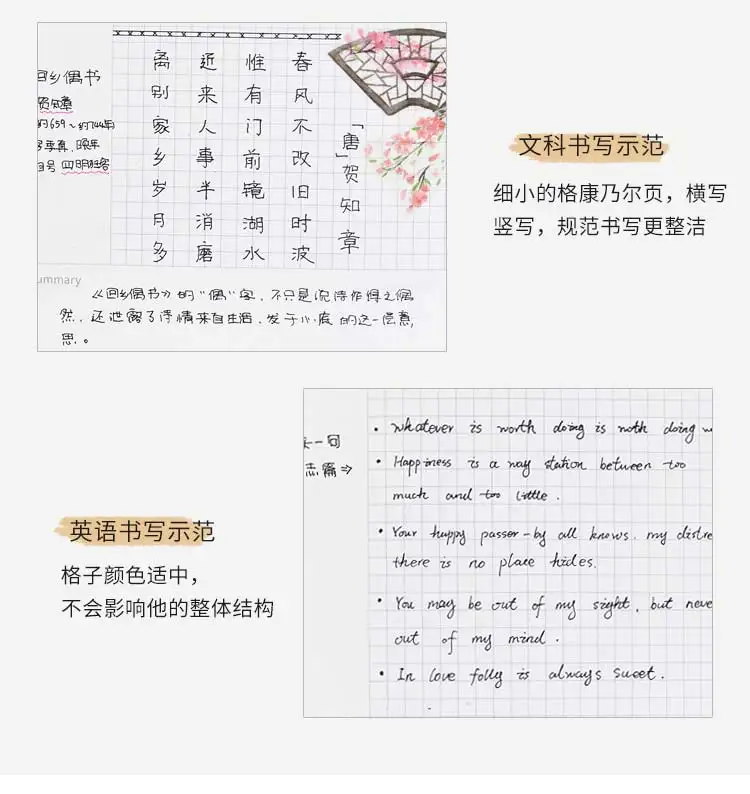 回乡偶书
贺知章
约659~约744年
字季真，晚年
自号 四明狂客
「唐」贺知章
春风不改旧时波
惟有门前镜湖水
近来人事半消磨
离别家乡岁月多
ummary
《回乡偶书》的“偶”字，不只是说诗作得之偶
然，还泄露了诗情来自生活、发于心底的这一层意
思。
文科书写示范
细小的格康乃尔页，横写
竖写，规范书写更整洁
英语书写示范
格子颜色适中，
不会影响他的整体结构
一句
志篇⇒
• Whatever is worth doing is woth doing w
• Happiness is a way station between too
much and too little.
• Your huppy passer-by all knows. my distre
there is no place hides.
• You may be out of my sight, but neve
out of my mind.
• In love folly is always sweet.